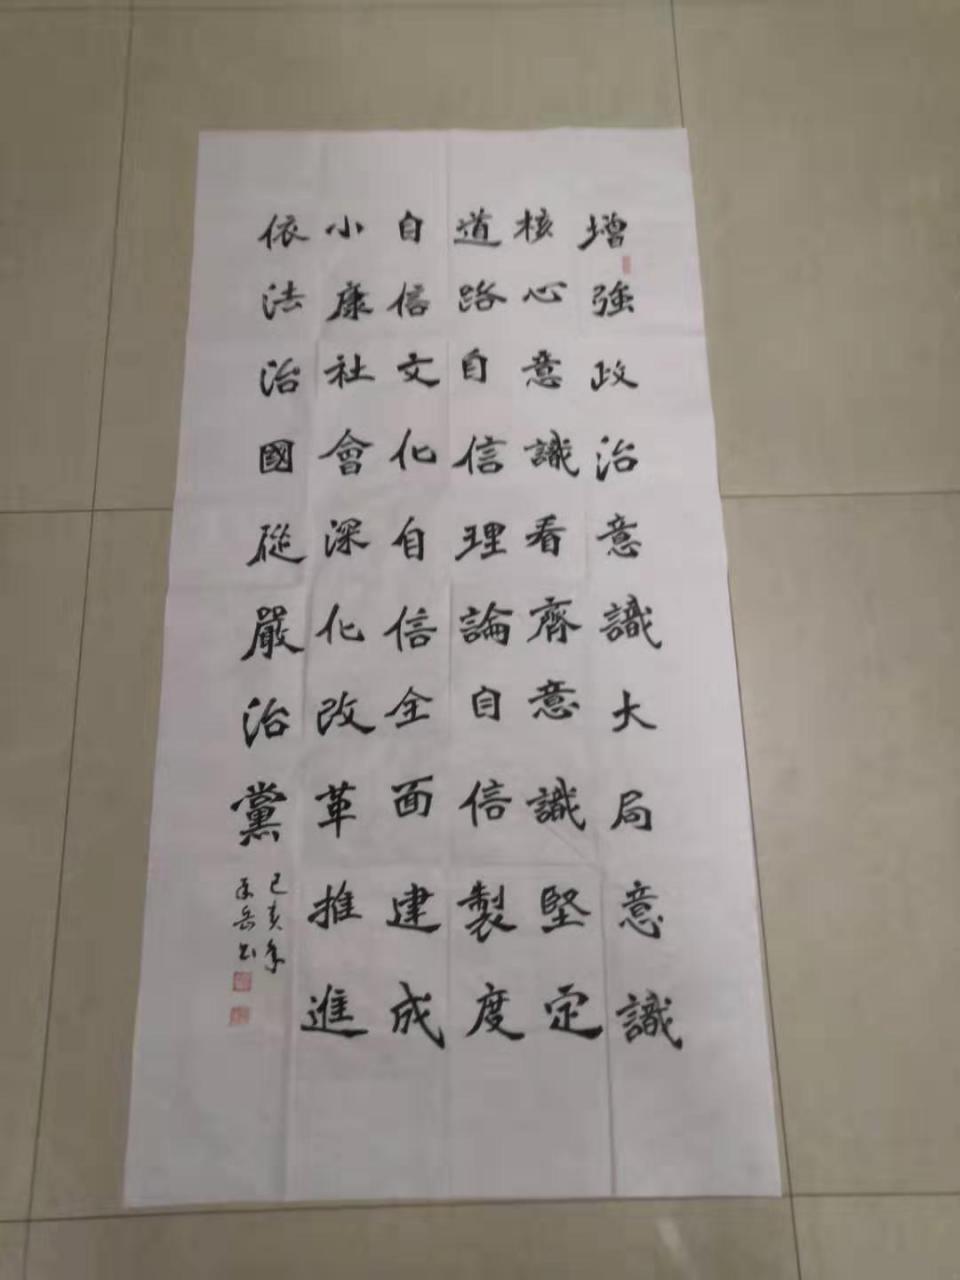 增強政治意識大局意識
核心意識看齊意識堅定
道路自信理論自信製度
自信文化自信全面建成
小康社會深化改革推進
依法治國從嚴治黨
己亥年
岳書